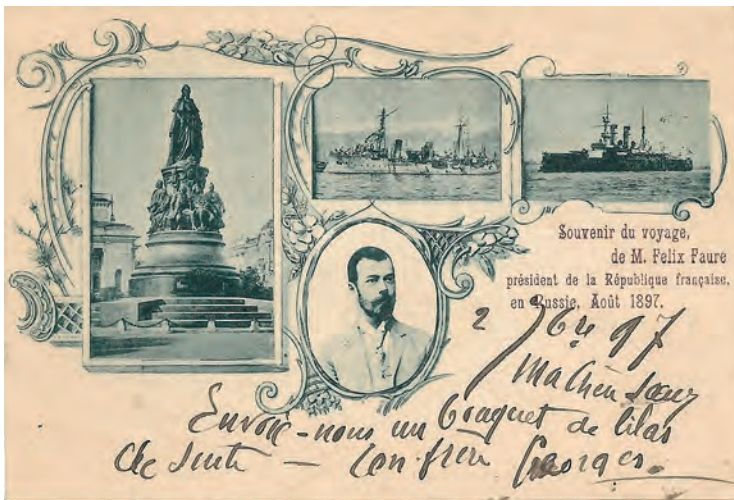 Souvenir du voyage,
de M. Felix Faure
président de la République française,
en Russie, Août 1897.
2 9bre 97
Ma chère soeur
Envoie-nous un bouquet de lilas
de suite — ton frère Georges.